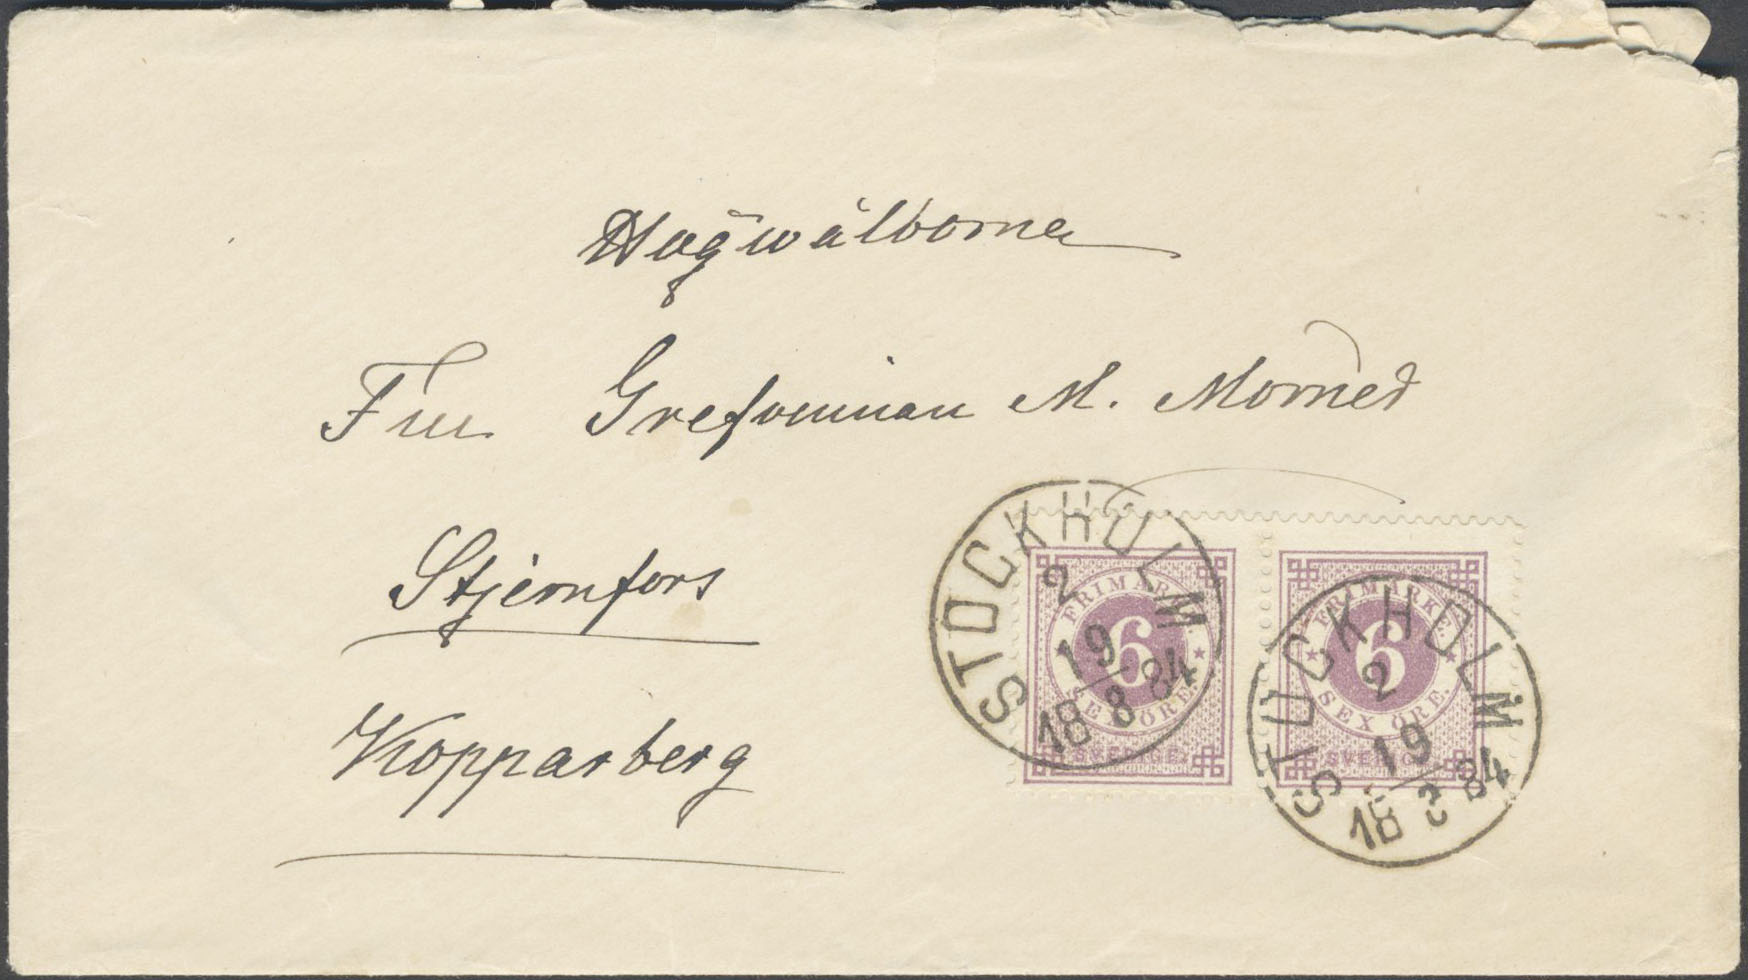 Högwälborna
Fru Grefvinnan M. Mörner
Stjernfors
Kopparberg
STOCKHOLM
2
19
18 8 84
FRIMÄRKE
6
SEX ÖRE.
SVERIGE.
STOCKHOLM
2
19
18 8 84
FRIMÄRKE
6
SEX ÖRE.
SVERIGE